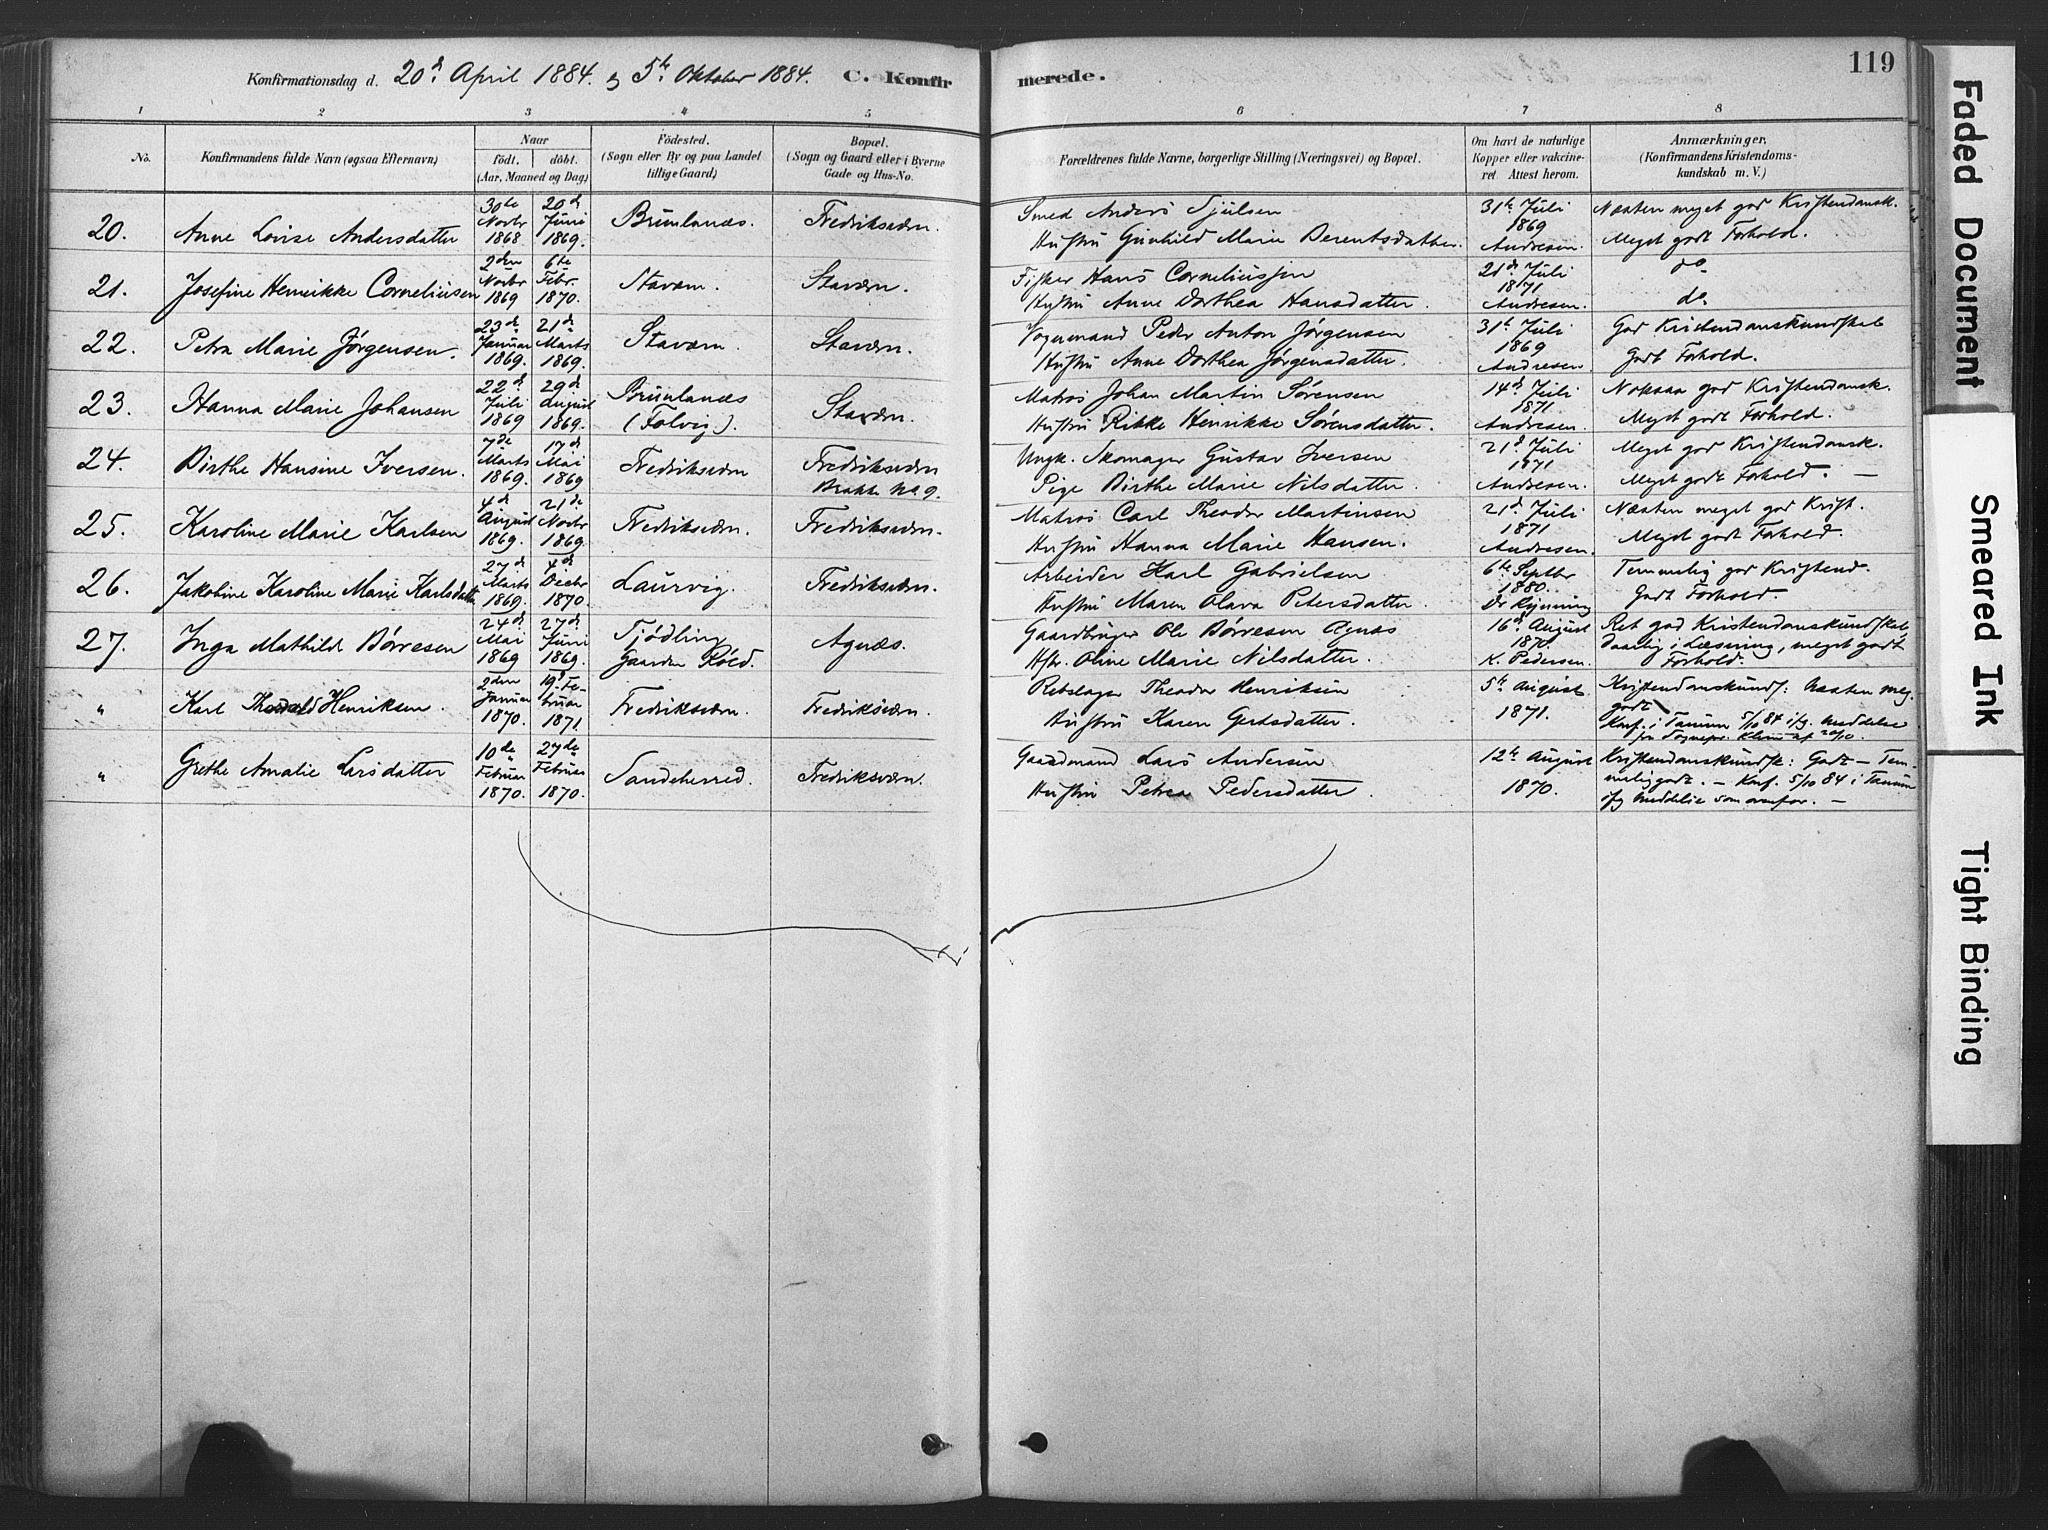 119
Konfirmationsdag d. 20d. April 1884. og 5te Oktober 1884. C. Konfirmerede.
1 2 3 4 5 6 7 8
No.
Konfirmandens fulde Navn (ogsaa Efternavn)
Naar
født, døbt.
(Aar, Maaned og Dag)
Födested.
(Sogn eller By og paa Landet tillige Gaard)
Bopæl.
(Sogn og Gaard eller i Byerne Gade og Hus-No.
Forældrenes fulde Navne, borgerlige Stilling (Næringsvei) og Bopæl.
Om havt de naturlige Kopper eller vakcineret. Attest herom.
Anmærkninger.
(Konfirmandens Kristendomskundskab m. V.)
20. Anne Lovise Andersdatter
30te Novbr 1868
20d Juni 1869.
Brunlanæs.
Fredriksværn.
Smed Anders
Hustru Gunhild Marie Berentsdatter.
31te Juli 1869 Andresen.
Næsten meget god Kristendomsk.
Meget godt Forhold.
21. Josefine Henrikke Corneliusen
2den Novbr 1869
6te Febr. 1870.
Staværn.
Staværn.
Fisker Hans Corneliussen
Hustru Anne Dorthea Hansdatter.
21d Juli 1871 Andresen.
do.
do.
22. Petra Marie Jørgensen.
23d Januar 1869.
21d Marts 1869.
Staværn.
Staværn.
Vognmand Peder Anton Jørgensen
Hustru Anne Dorthea Jørgensdatter.
31te Juli 1869 Andresen
God Kristendomskundskab
Godt Forhold.
23. Hanna Marie Johansen
22d Juli 1869
29d August 1869.
Brunlanæs
(Folvig).
Staværn.
Matros Johan Martin Sørensen
Hustru Rikke Henrikke Sørensdatter.
14d Juli 1871 Andresen.
Noksaa god Kristendomsk.
Meget godt Forhold.
24. Birthe Hansine Iversen.
7de Marts 1869.
17d Mai 1869
Fredriksværn
Fredriksværn
Brakke No 9.
Ungk. Skomager Gustav Iversen
Pige Birthe Marie Nilsdatter.
21d Juli 1871 Andresen.
Meget god Kristendomsk.
Meget godt Forhold. —
25. Karoline Marie Karlsen
4d August 1869.
21de Novbr 1869.
Fredriksværn.
Fredriksværn.
Matros Carl Theodor Martinsen
Hustru Hanna Marie Hansen.
21d Juli 1871 Andresen.
Næsten meget god Krist.
Meget godt Forhold.
26. Jakobine Karoline Marie Karlsdatter
27d. Marts 1869.
4d. Decbr 1870.
Laurvig.
Fredriksværn.
Arbeider Karl Gabrielsen
Hustru Maren Olava Petersdatter.
6te Septbr 1880.
Temmelig god Kristend.
Godt Forhold.
27. Inga Mathild Børresen
24d. Mai 1869
27d. Juni 1869.
Tjødling
Gaarden Røed.
Agnæs.
Gaardbruger Ole Børresen Agnæs
Hstr. Oline Marie Nilsdatter.
16d. August 1870. K. Pedersen.
Ret god Kristendomskundskab
daarlig i Læsning, meget godt
Forhold.
" Karl Henriksen.
2den Januar 1870.
19d. Februar 1871.
Fredriksværn.
Fredriksværn.
Rebslager Theodor Henriksen
Hustru Karen Gertsdatter.
5te August 1871.
Kristendomskundsk: Næsten meg.
godt
Konf. i Tanum 5/10 84 ifg. Meddelse
fra Sognepr. 20/10.
" Grethe Amalie Larsdatter
10de Februar 1870.
27de Februar 1870.
Sandeherred.
Fredriksværn.
Gaardmand Lars Andersen
Hustru Petrea Pedersdatter.
12te August 1870.
Kristendomskundsk: Godt — Tem-
melig godt. — Konf. 5/10 84 i Tanum
ifg Meddelse som ovenfor. —
Faded Document
Smeared Ink
Tight Binding